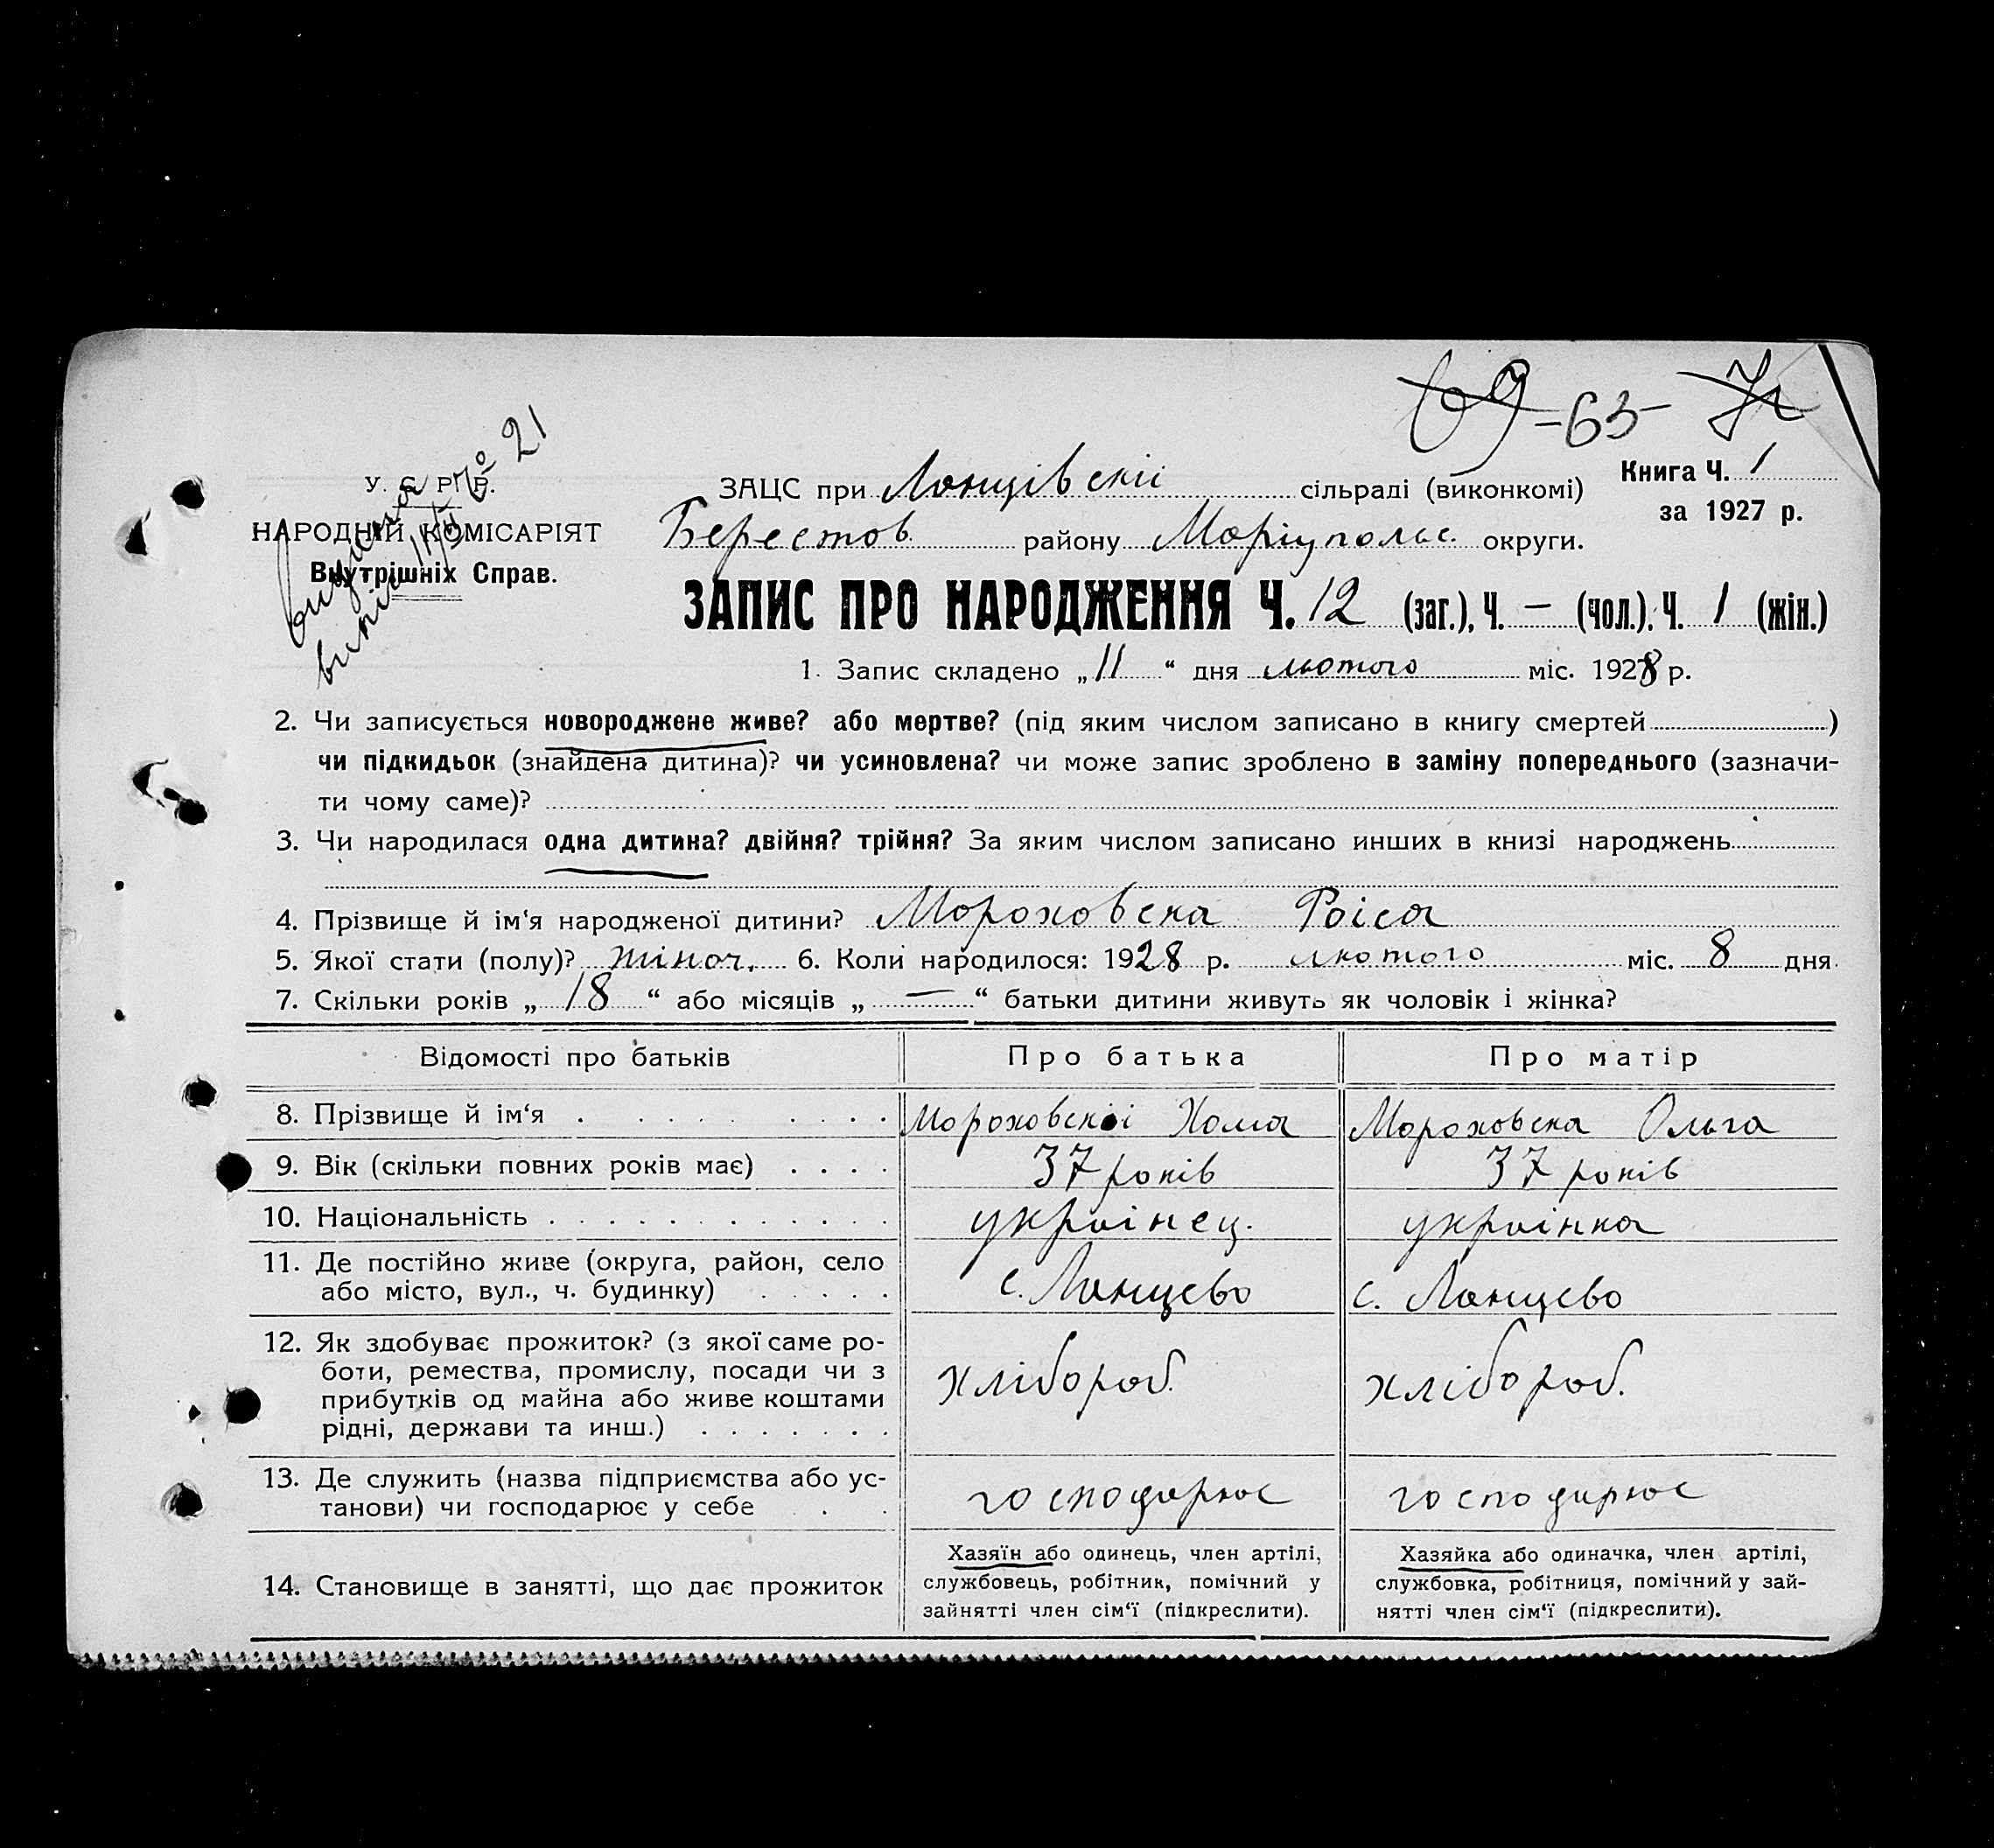 69 -63- 71
№ 21
У. С. Р. Р.
НАРОДНІЙ КОМІСАРІЯТ
Внутрішніх Справ.
ЗАЦС при Ланцівскій сільраді (виконкомі)
Книга Ч. 1
за 1927 р.
Берестов. району Маріупольс. округи.
ЗАПИС ПРО НАРОДЖЕННЯ Ч. 12 (заг.), Ч. — (чол.). Ч. 1 (жін.)
1. Запис складено „ 11 “ дня лютого міс. 1928 р.
2. Чи записується новороджене живе? або мертве? (під яким числом записано в книгу смертей )
чи підкидьок (знайдена дитина)? чи усиновлена? чи може запис зроблено в заміну попереднього (зазначи-
ти чому саме)?
3. Чи народилася одна дитина? двійня? трійня? За яким числом записано инших в книзі народжень
4. Прізвище й ім‘я народженої дитини? Мороховска Раіса
5. Якої стати (полу)? жіноч. 6. Коли народилося: 1928 р. лютого міс. 8 дня
7. Скільки років „ 18 “ або місяців „ — “ батьки дитини живуть як чоловік і жінка?
Відомості про батьків Про батька Про матір
8. Прізвище й ім‘я Мороховскі Хома Мороховска Ольга
9. Вік (скільки повних років має) 37 років 37 років
10. Національність украінец. украінка
11. Де постійно живе (округа, район, село
або місто, вул., ч. будинку) с. Ланцево с. Ланцево
12. Як здобуває прожиток? (з якої саме ро-
боти, ремества, промислу, посади чи з
прибутків од майна або живе коштами
рідні, держави та инш.) хлібороб. хлібороб.
13. Де служить (назва підприємства або ус-
танови) чи господарює у себе господарює господарює
14. Становище в занятті, що дає прожиток
Хазяїн або одинець, член артілі,
службовець, робітник, помічний у
зайнятті член сім‘ї (підкреслити).
Хазяйка або одиначка, член артілі,
службовка, робітниця, помічний у зай-
нятті член сім‘ї (підкреслити).